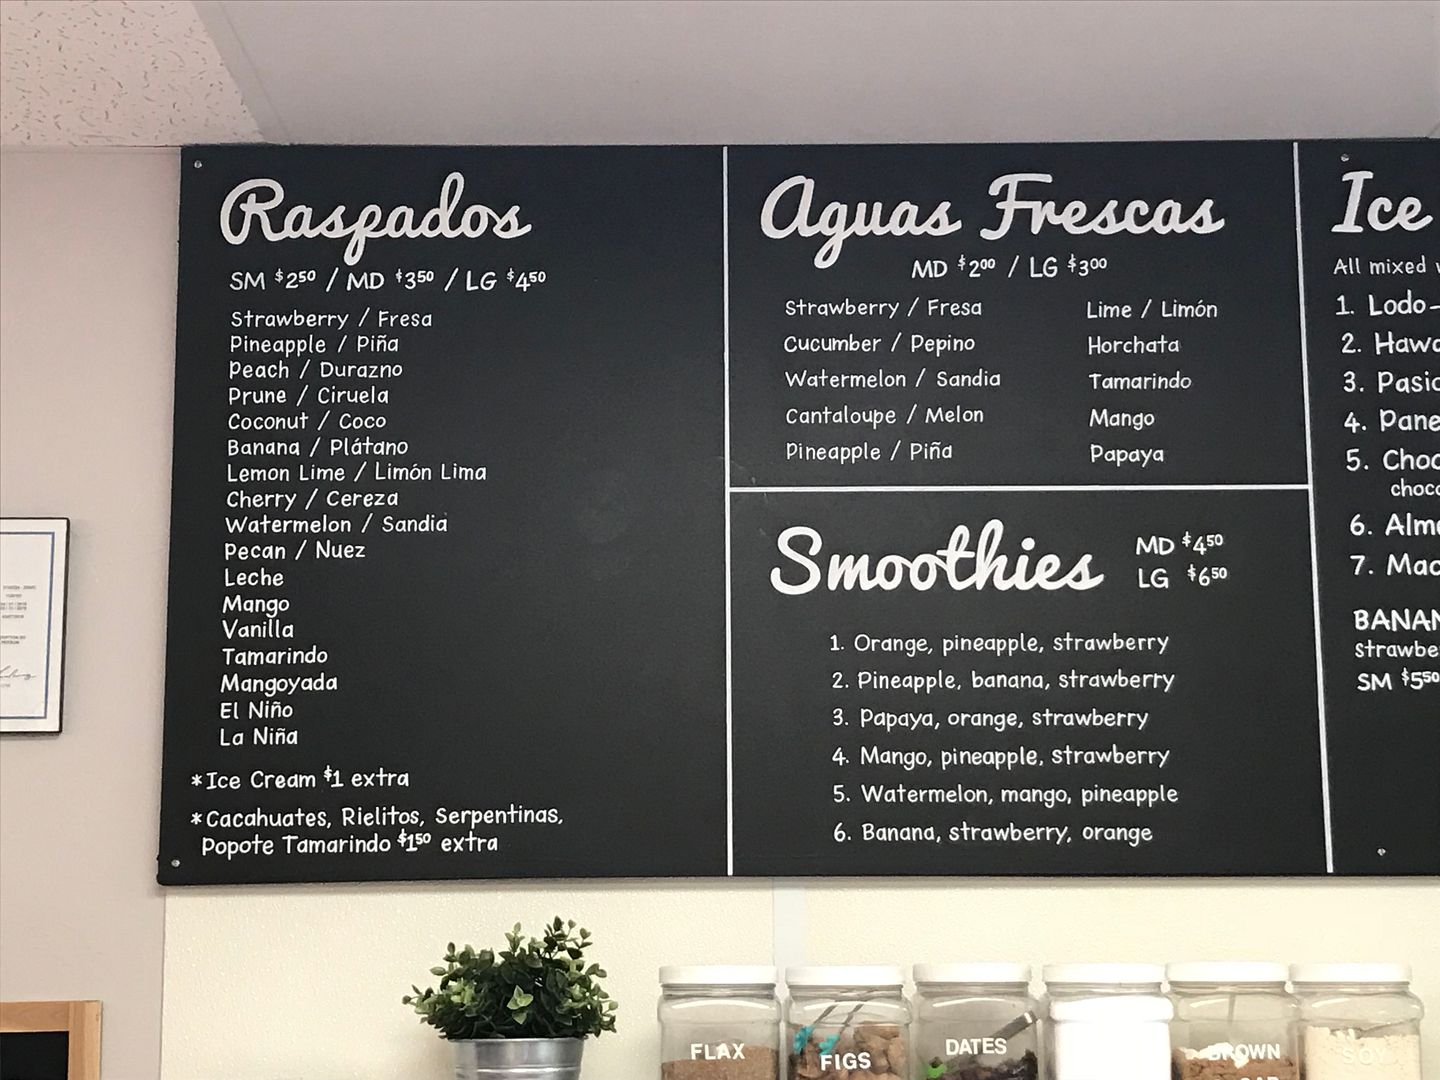 Raspados
SM $2.50 / MD $3.50 / LG $4.50
Strawberry / Fresa
Pineapple / Piña
Peach / Durazno
Prune / Ciruela
Coconut / Coco
Banana / Plátano
Lemon Lime / Limón Lima
Cherry / Cereza
Watermelon / Sandia
Pecan / Nuez
Leche
Mango
Vanilla
Tamarindo
Mangoyada
El Niño
La Niña
*Ice Cream $1 extra
*Cacahuates, Rielitos, Serpentinas,
Popote Tamarindo $1.50 extra
Aguas Frescas
MD $2.00 / LG $3.00
Strawberry / Fresa
Cucumber / Pepino
Watermelon / Sandia
Cantaloupe / Melon
Pineapple / Piña
Lime / Limón
Horchata
Tamarindo
Mango
Papaya
Smoothies
MD $4.50
LG $6.50
1. Orange, pineapple, strawberry
2. Pineapple, banana, strawberry
3. Papaya, orange, strawberry
4. Mango, pineapple, strawberry
5. Watermelon, mango, pineapple
6. Banana, strawberry, orange
Ice
All mixed
1. Lodo-
2. Hawa
3. Pasio
4. Pane
5. Choc
choco
6. Alme
7. Mac
BANAN
strawbe
SM $5.50
FLAX
FIGS
DATES
BROWN
SOY